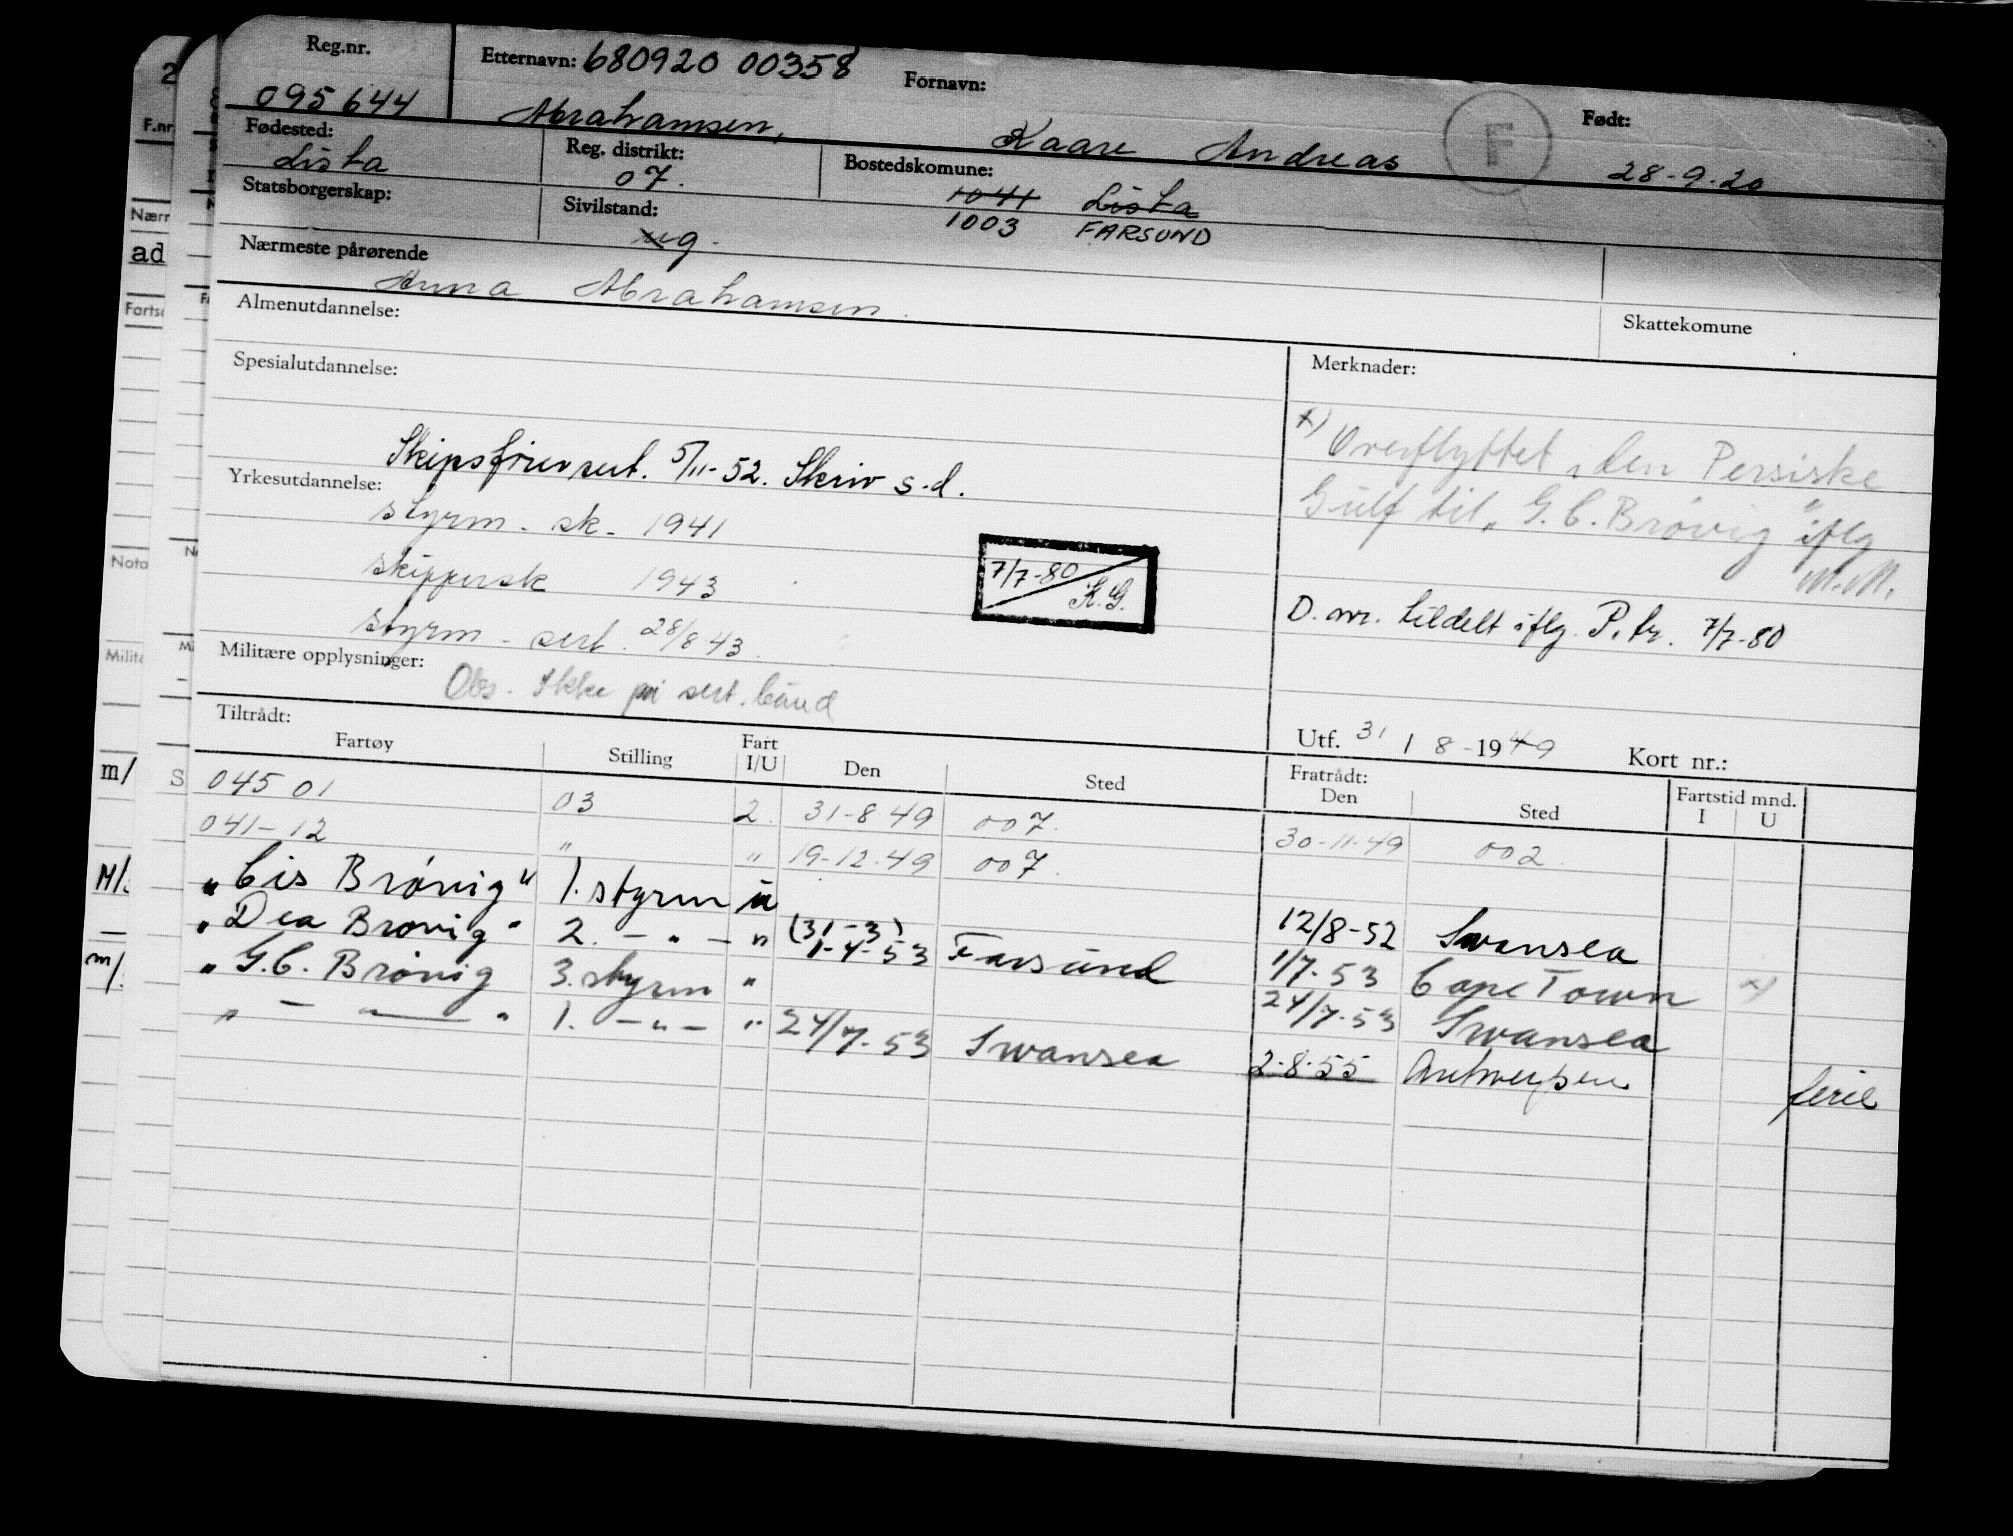 Reg.nr. Etternavn: 680920 00358 Fornavn: Født:
095644 Abrahamsen, Kaare Andreas F 28-9-20
Fødested: Reg. distrikt: Bostedskomune:
Lista 07. 1041 Lista
Statsborgerskap: Sivilstand: 1003 FARSUND
ug.
Nærmeste pårørende
Anna Abrahamsen.
Almenutdannelse: Skattekomune
Spesialutdannelse: Merknader:
x) Overflyttet i den Persiske
Gulf til "G.C. Brøvig" iflg
M.M.
Skipsførersert. 5/11-52. Skriv s.d.
Yrkesutdannelse:
styrm. sk. 1941
skippersk 1943
7/7-80 K.G.
D. nr. tildelt iflg. P. kr. 7/7-80
styrm. sert. 28/8 43.
Militære opplysninger:
Obs. Ikke på sert. bånd
Utf. 31 / 8 - 1949 Kort nr.:
Tiltrådt: Fratrådt:
Fartøy Stilling Fart I/U Den Sted Den Sted Fartstid mnd. I U
045 01 03 2. 31-8 49 007. 30-11-49 002
041-12 " " 19-12-49 007.
"Cis Brøvig" 1. styrm u 12/8-52 Swansea
"Dea Brøvig" 2. - " - " (31-3) 1-4-53 Farsund 1/7-53 Cape Town x)
"G.C. Brøvig 3. styrm " 24/7-53 Swansea
" - " 1. - " - " 24/7-53 Swansea 2-8-55 Antwerpen ferie
2
F.nr
Nærr
ad
Fartsø
Nota
Milita
m/ S
M/.
m/.